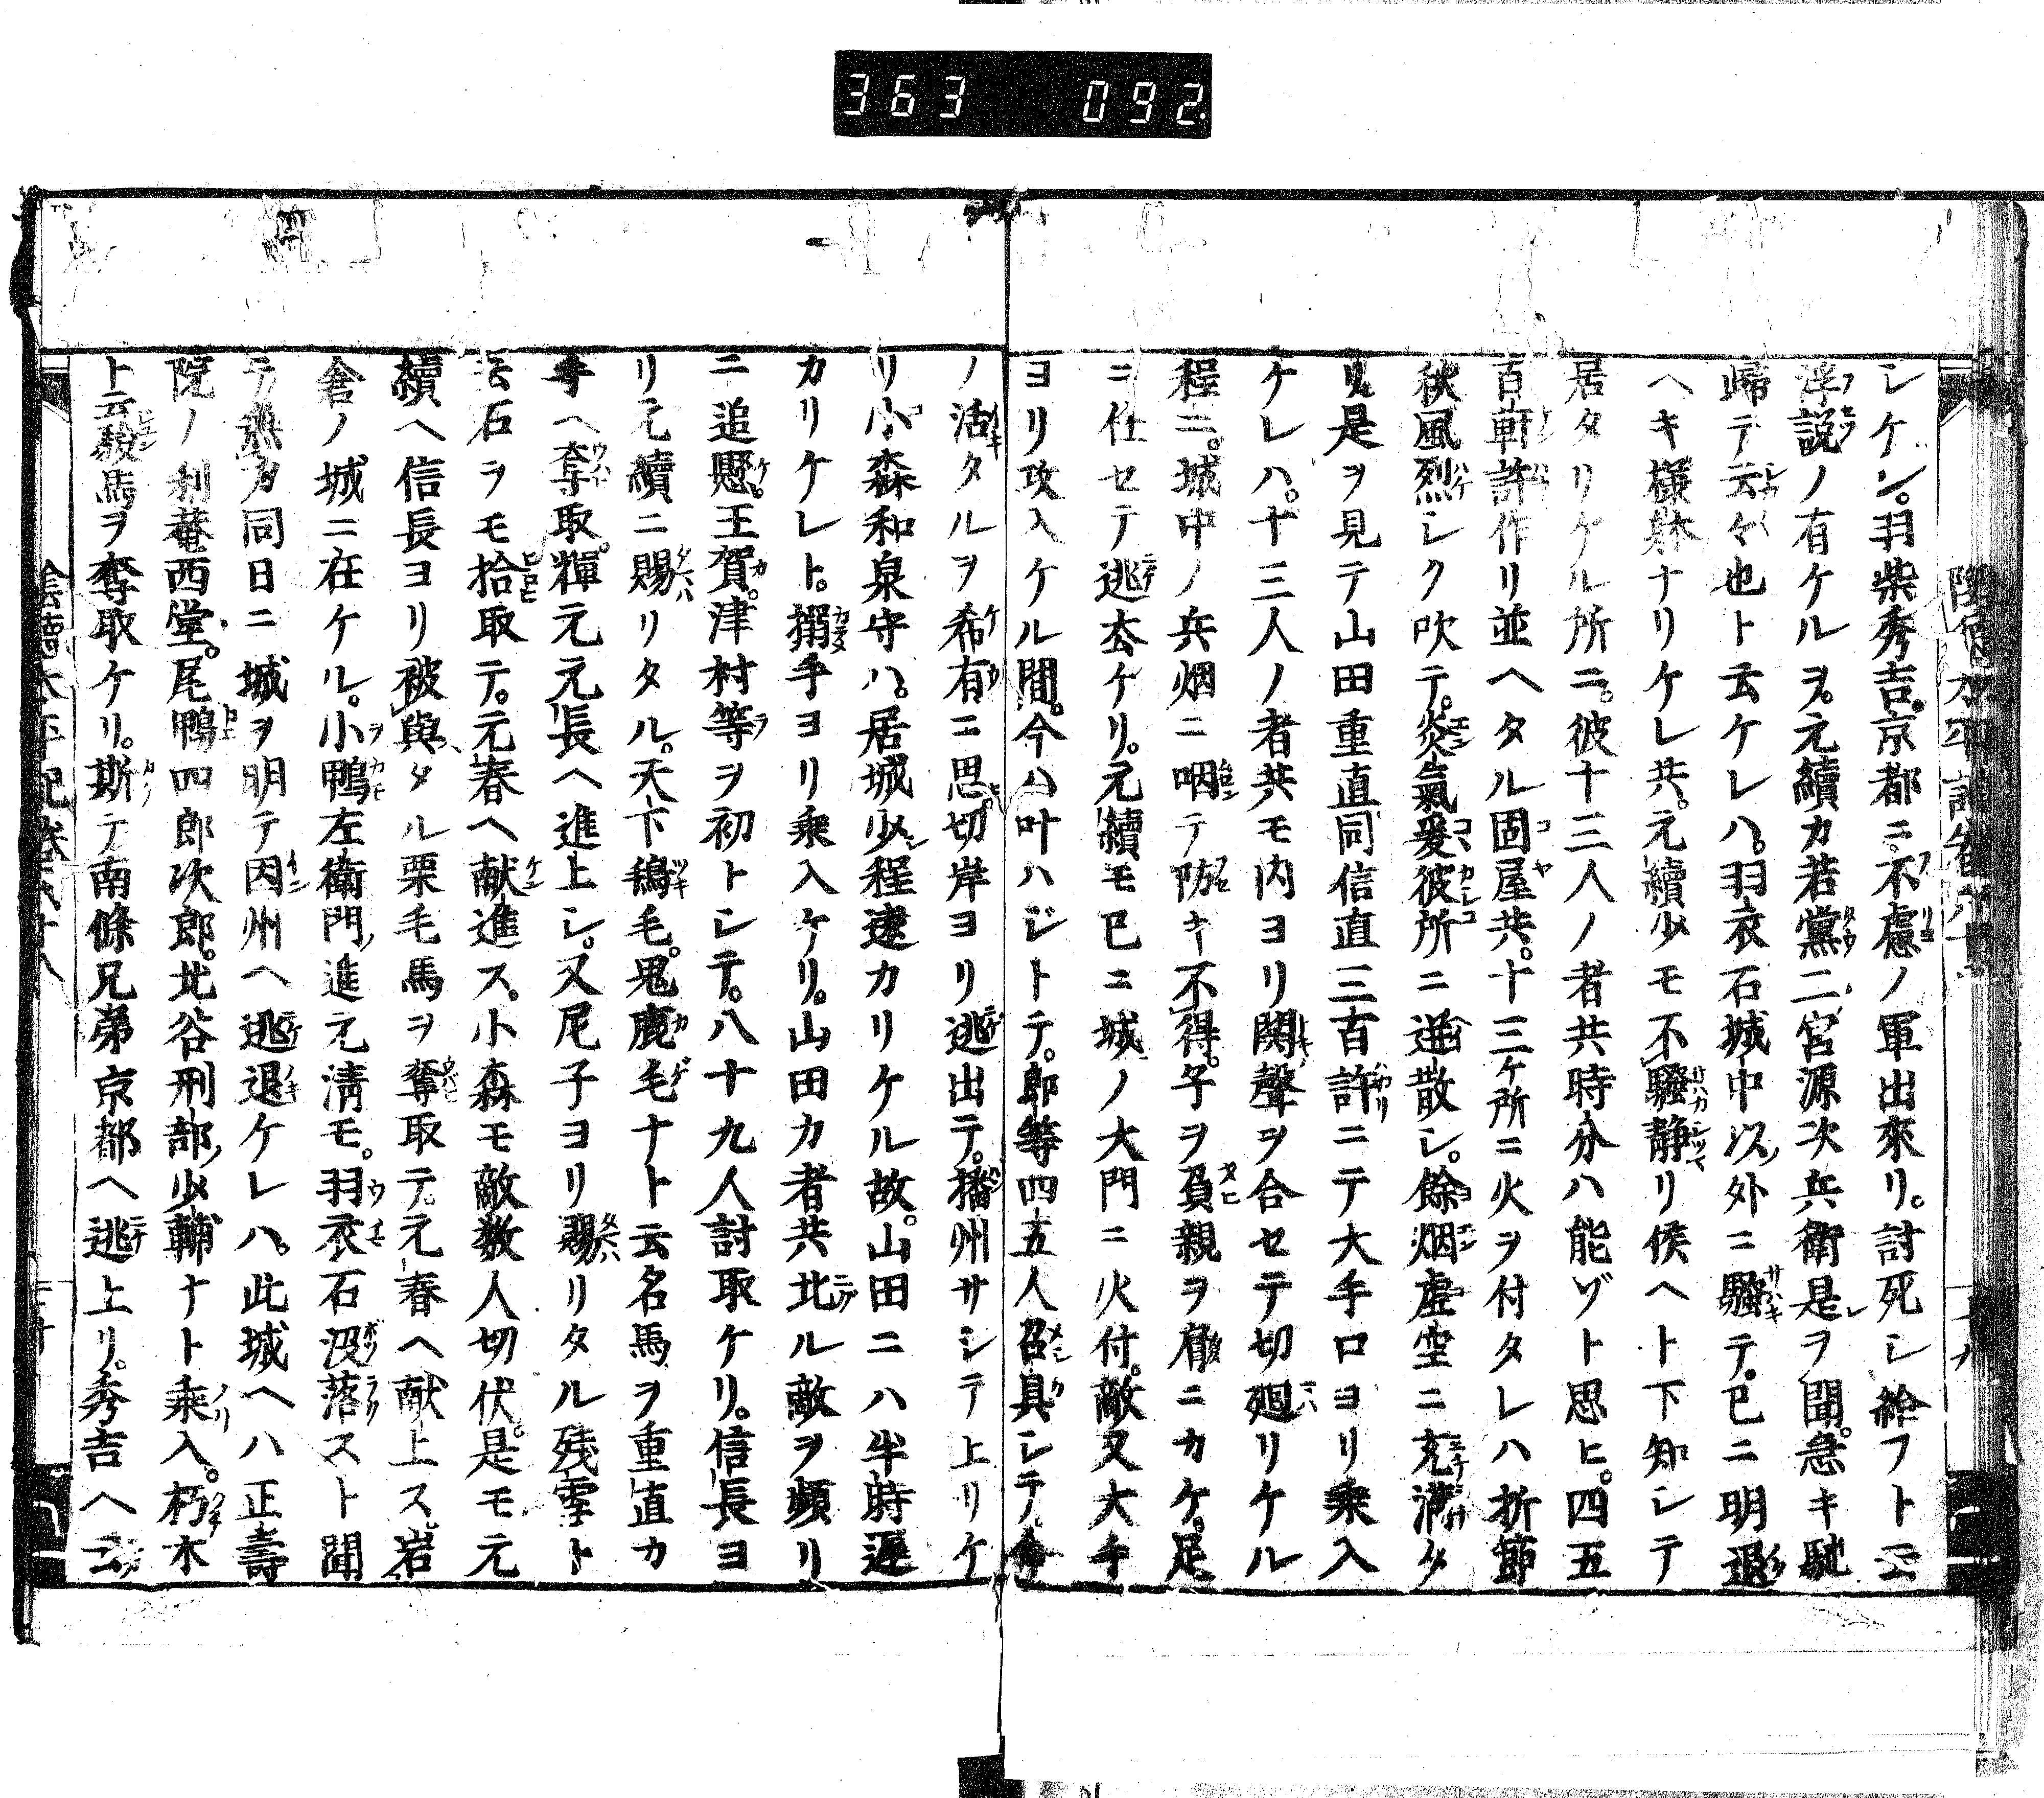 363 092
シケン。羽柴秀吉。京都ニ不慮ノ軍出來リ。討死シ給フト云
浮説ノ有ケルヲ。元續カ若黨二宮源次兵衛是ヲ聞。急キ馳
歸テ云々也ト云ケレハ。羽衣石城中以外ニ騒テ。已ニ明退
ヘキ様躰ナリケレ共。元續少モ不騒静リ候ヘト下知シテ
居タリケル所ニ。彼十三人ノ者共時分ハ能ゾト思ヒ。四五
百軒許作リ並ヘタル固屋共。十三ケ所ニ火ヲ付タレハ折節
秋風烈シク吹テ。炎氣爰彼所ニ迸散シ。餘烟虚空ニ充満タ
リ是ヲ見テ山田重直同信直三百許ニテ大手口ヨリ乗入
ケレハ。十三人ノ者共モ内ヨリ閧聲ヲ合セテ切廻リケル
程ニ。城中ノ兵烟ニ咽テ防キ不得。子ヲ負親ヲ肩ニカケ。足
ニ任セテ逃去ケリ。元續モ已ニ城ノ大門ニ火付。敵又大手
ヨリ攻入ケル間。今ハ叶ハジトテ。郎等四五人召具シテ
ノ活タルヲ希有ニ思。切岸ヨリ逃出テ。播州サシテ上リケ
リ小森和泉守ハ。居城少程遠カリケル故。山田ニハ半時遅
カリケレト。搦手ヨリ乗入ケリ。山田カ者共北ル敵ヲ頻リ
ニ追懸。王賀。津村等ヲ初トシテ。八十九人討取ケリ。信長ヨ
リ元續ニ賜リタル。天下鵇毛。鬼鹿毛ナト云名馬ヲ重直カ
手ヘ奪取。輝元元長ヘ進上シ。又尾子ヨリ賜リタル残雪ト
云石ヲモ拾取テ。元春ヘ献進ス。小森モ敵数人切伏。是モ元
續ヘ信長ヨリ被與タル栗毛馬ヲ奪取テ。元春ヘ献上ス。岩
倉ノ城ニ在ケル。小鴨左衛門進元清モ。羽衣石没落スト聞
テ。同日ニ城ヲ明テ因州ヘ逃退ケレハ。此城ヘハ正壽
院ノ利菴西堂。尾鴨四郎次郎。北谷刑部少輔ナト乗入。朽木
ト云駿馬ヲ奪取ケリ。斯テ南條兄弟京都ヘ逃上リ。秀吉ヘ云